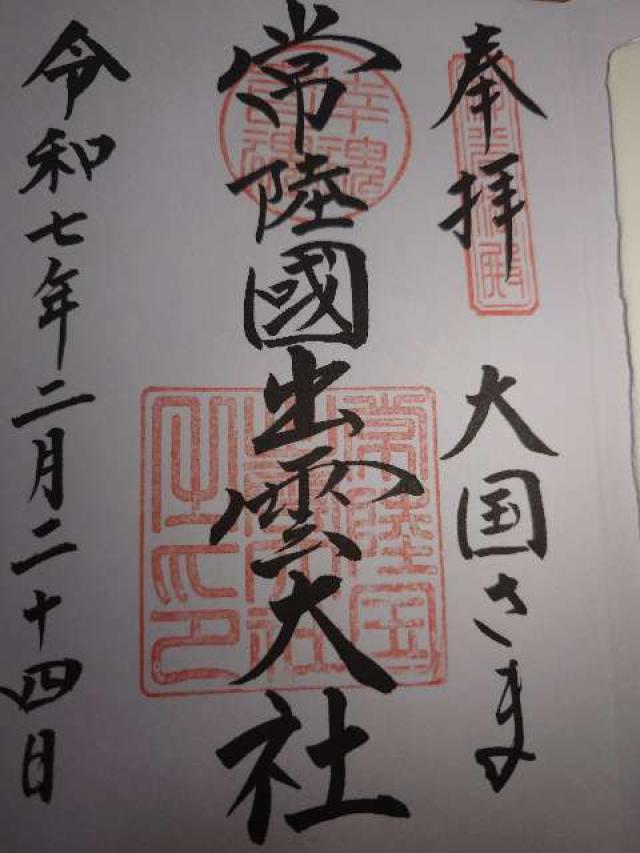 奉拝
大国さま
常陸國出雲大社
常陸国出雲大社之印
令和七年二月二十四日